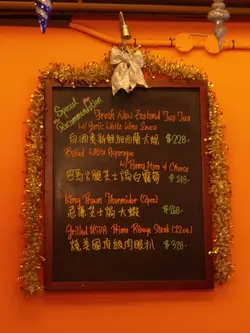 Special for
Recommendation
Fresh New Zealand Tua Tua
w/ Garlic White Wine Sauce
白酒煮新鮮紐西蘭大蜆 $228-
Boiled White Asparagus
w/ Parma Ham & Cheese
巴馬火腿芝士焗白露筍
King Prawn Thermidor (2pcs)
尼龐芝士焗大蝦 $268-
Grilled USDA Prime Ribeye Steak (22oz)
燒美國頂級肉眼扒 $328-